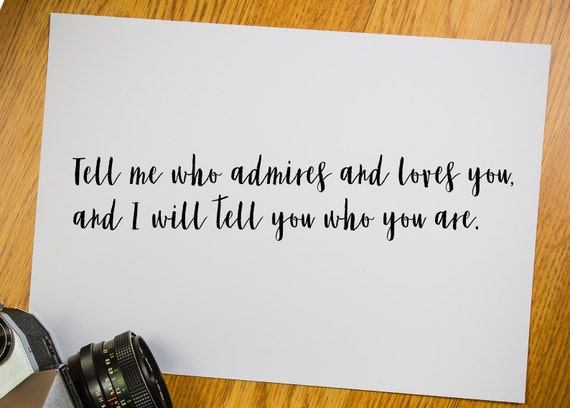 Tell me who admires and loves you,
and I will tell you who you are.